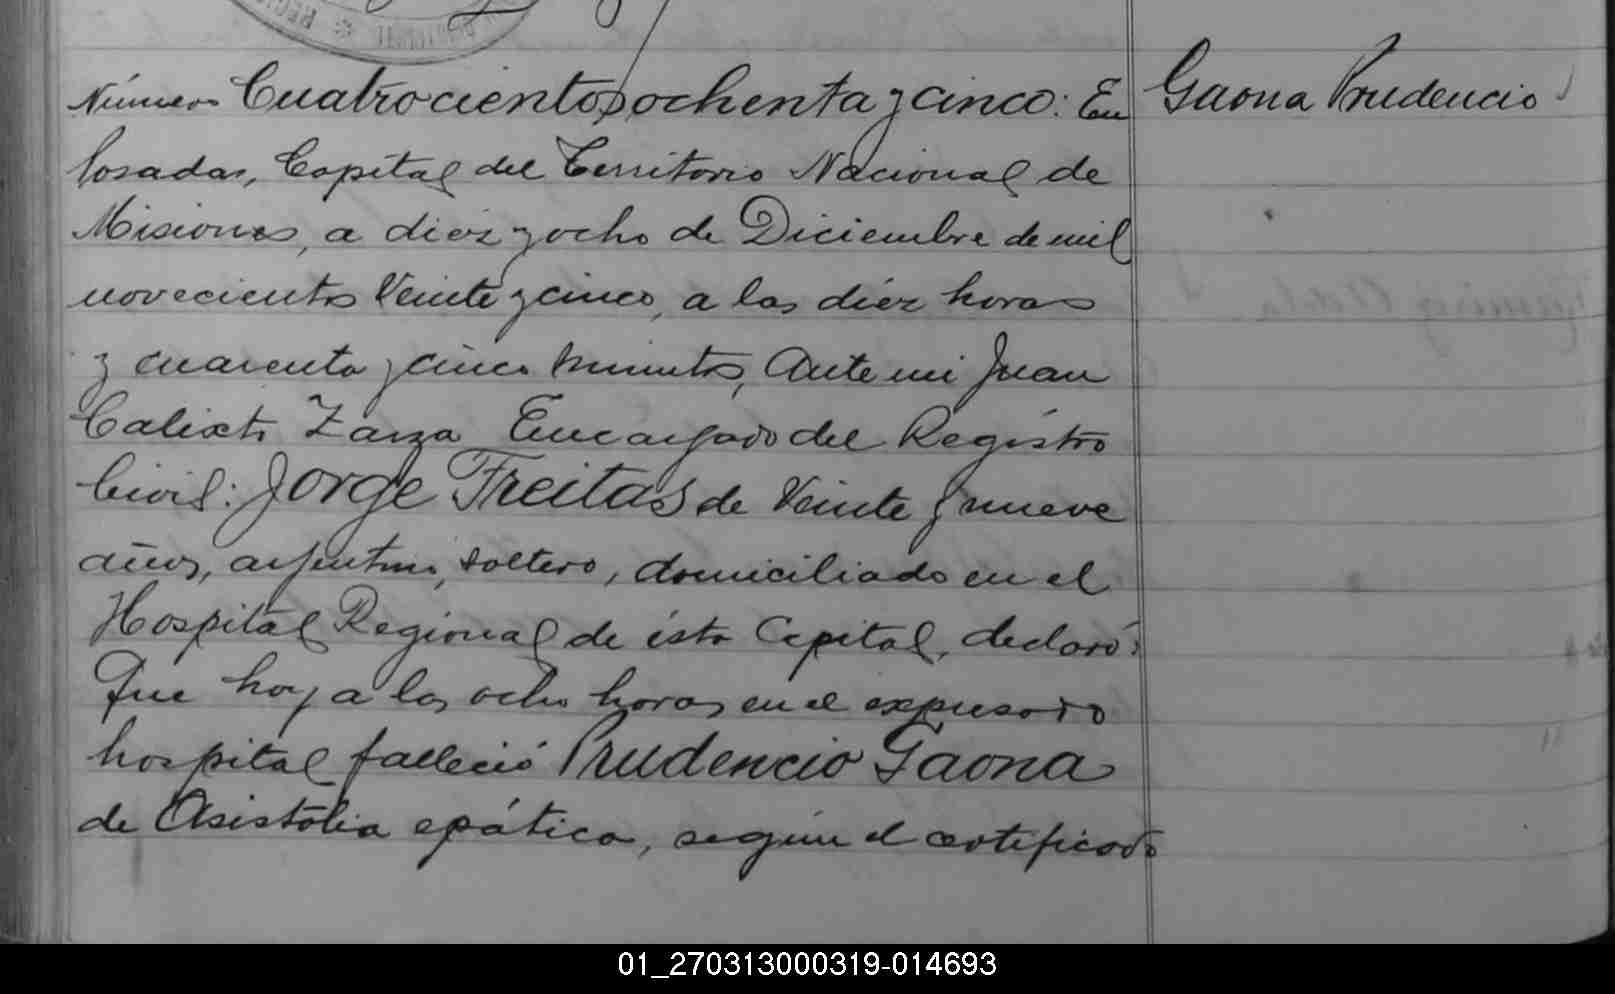 Número Cuatrocientos ochenta y cinco: En
Posadas, Capital del Territorio Nacional de
Misiones, a diez y ocho de Diciembre de mil
novecientos veinte y cinco, a las diéz horas
y cuarenta y cinco minutos, Ante mi Juan
Calixto Zarza Encargado del Registro
Civil: Jorge Freitas de veinte y nueve
años, argentino, soltero, domiciliado en el
Hospital Regional de ésta Capital, declaró:
Que hoy a las ocho horas en el expresado
hospital falleció Prudencio Gaona
de Asistólia epática, según el certificado
Gaona Prudencio
01_270313000319-014693